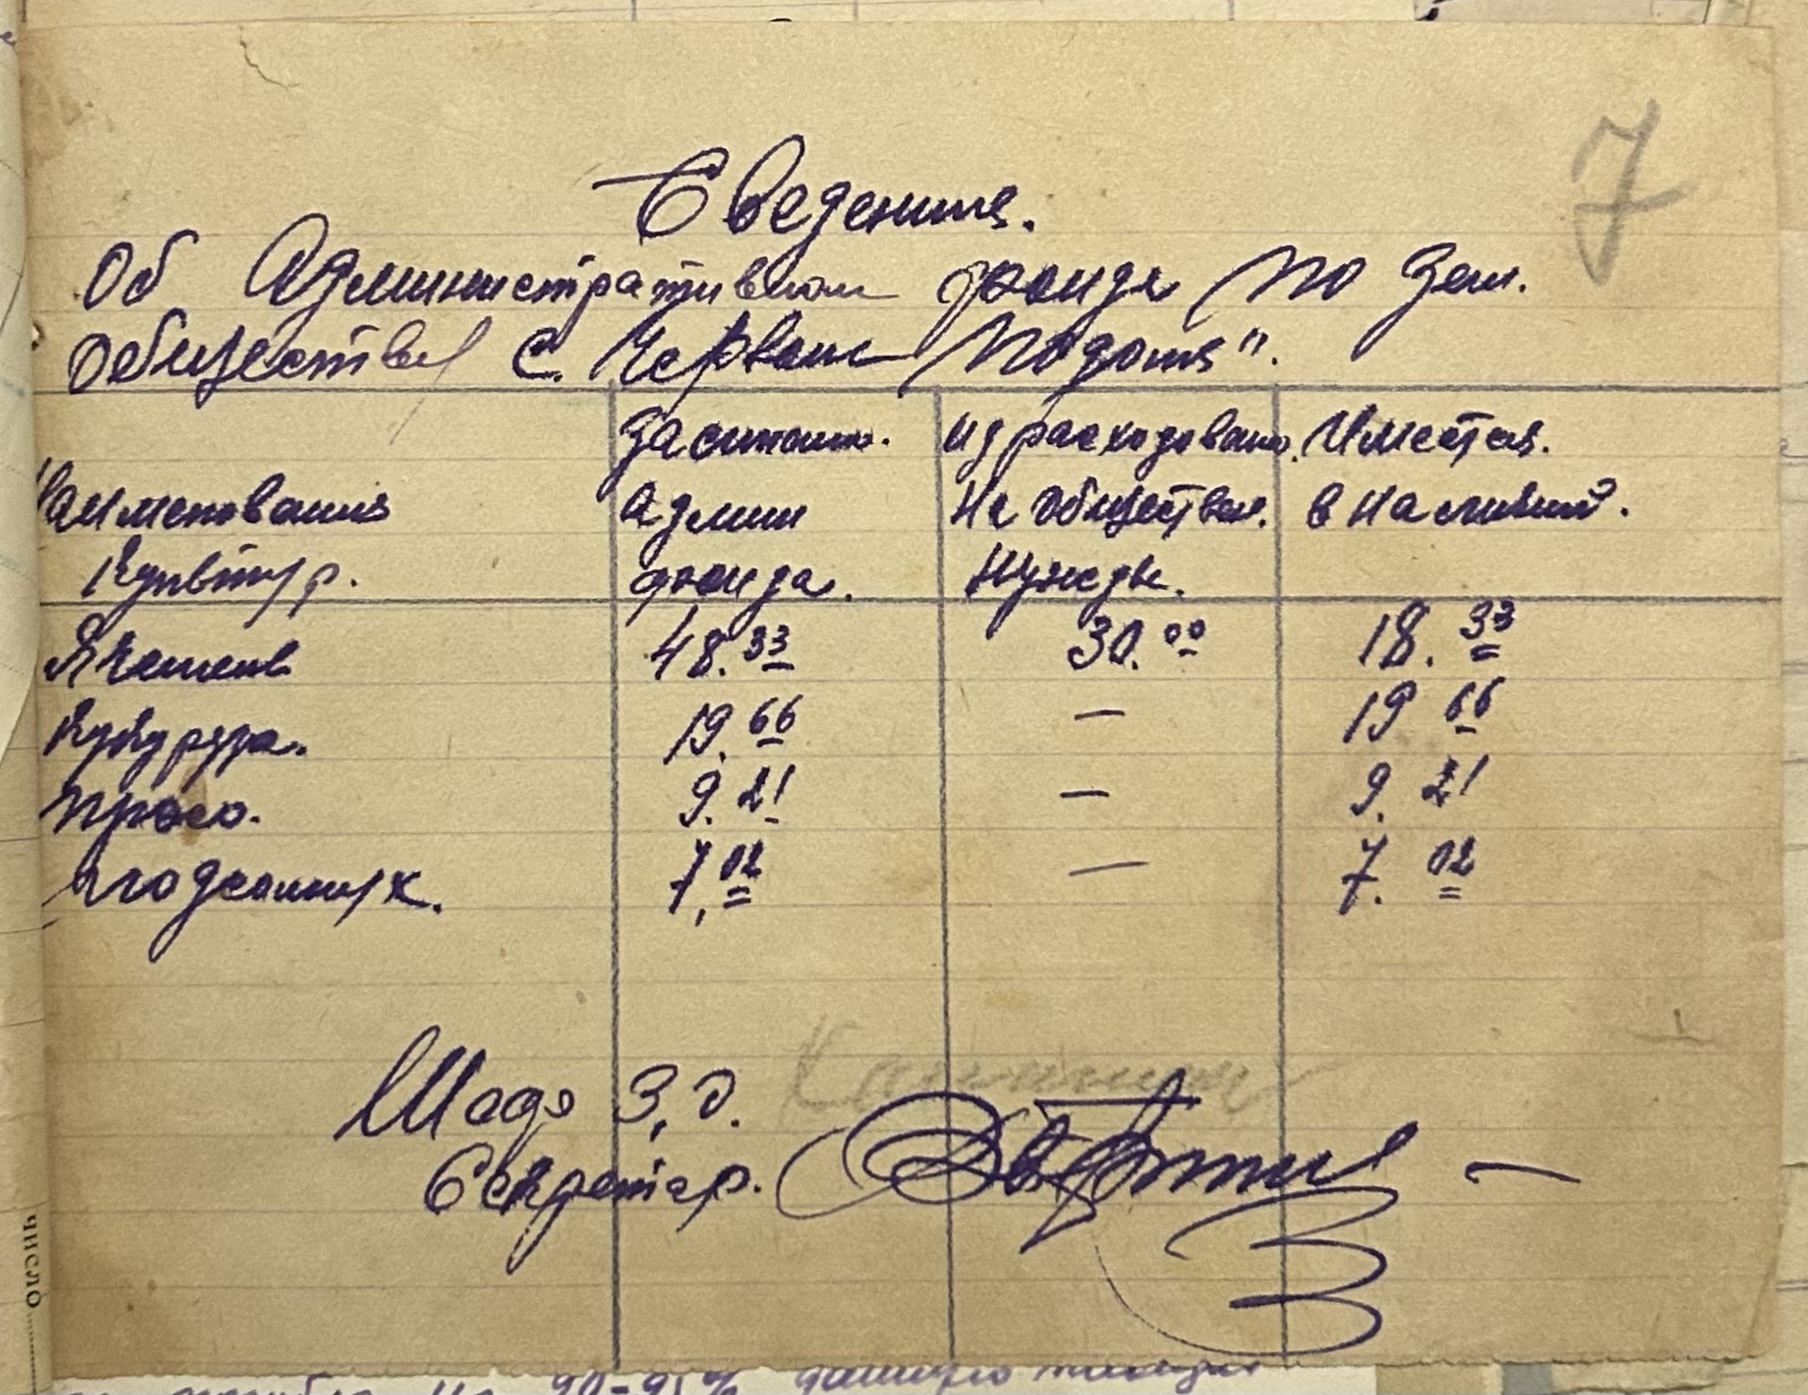 7
Сведения.
Об Административном фонде по Зем.
Обществу С. Червон Подомя".
Наименования Культур. Засыпано. админ фонда. Израсходовано. На Обществен. Нужды. Имеется. в наличий.
Ячмень 48.33 30.00 18.33
Кукуруза. 19.66 — 19 66
Просо. 9.21 — 9.21
подсолнух. 7,02 — 7.02
З, О.
Секретар.
ЧИСЛО
на 90-95%